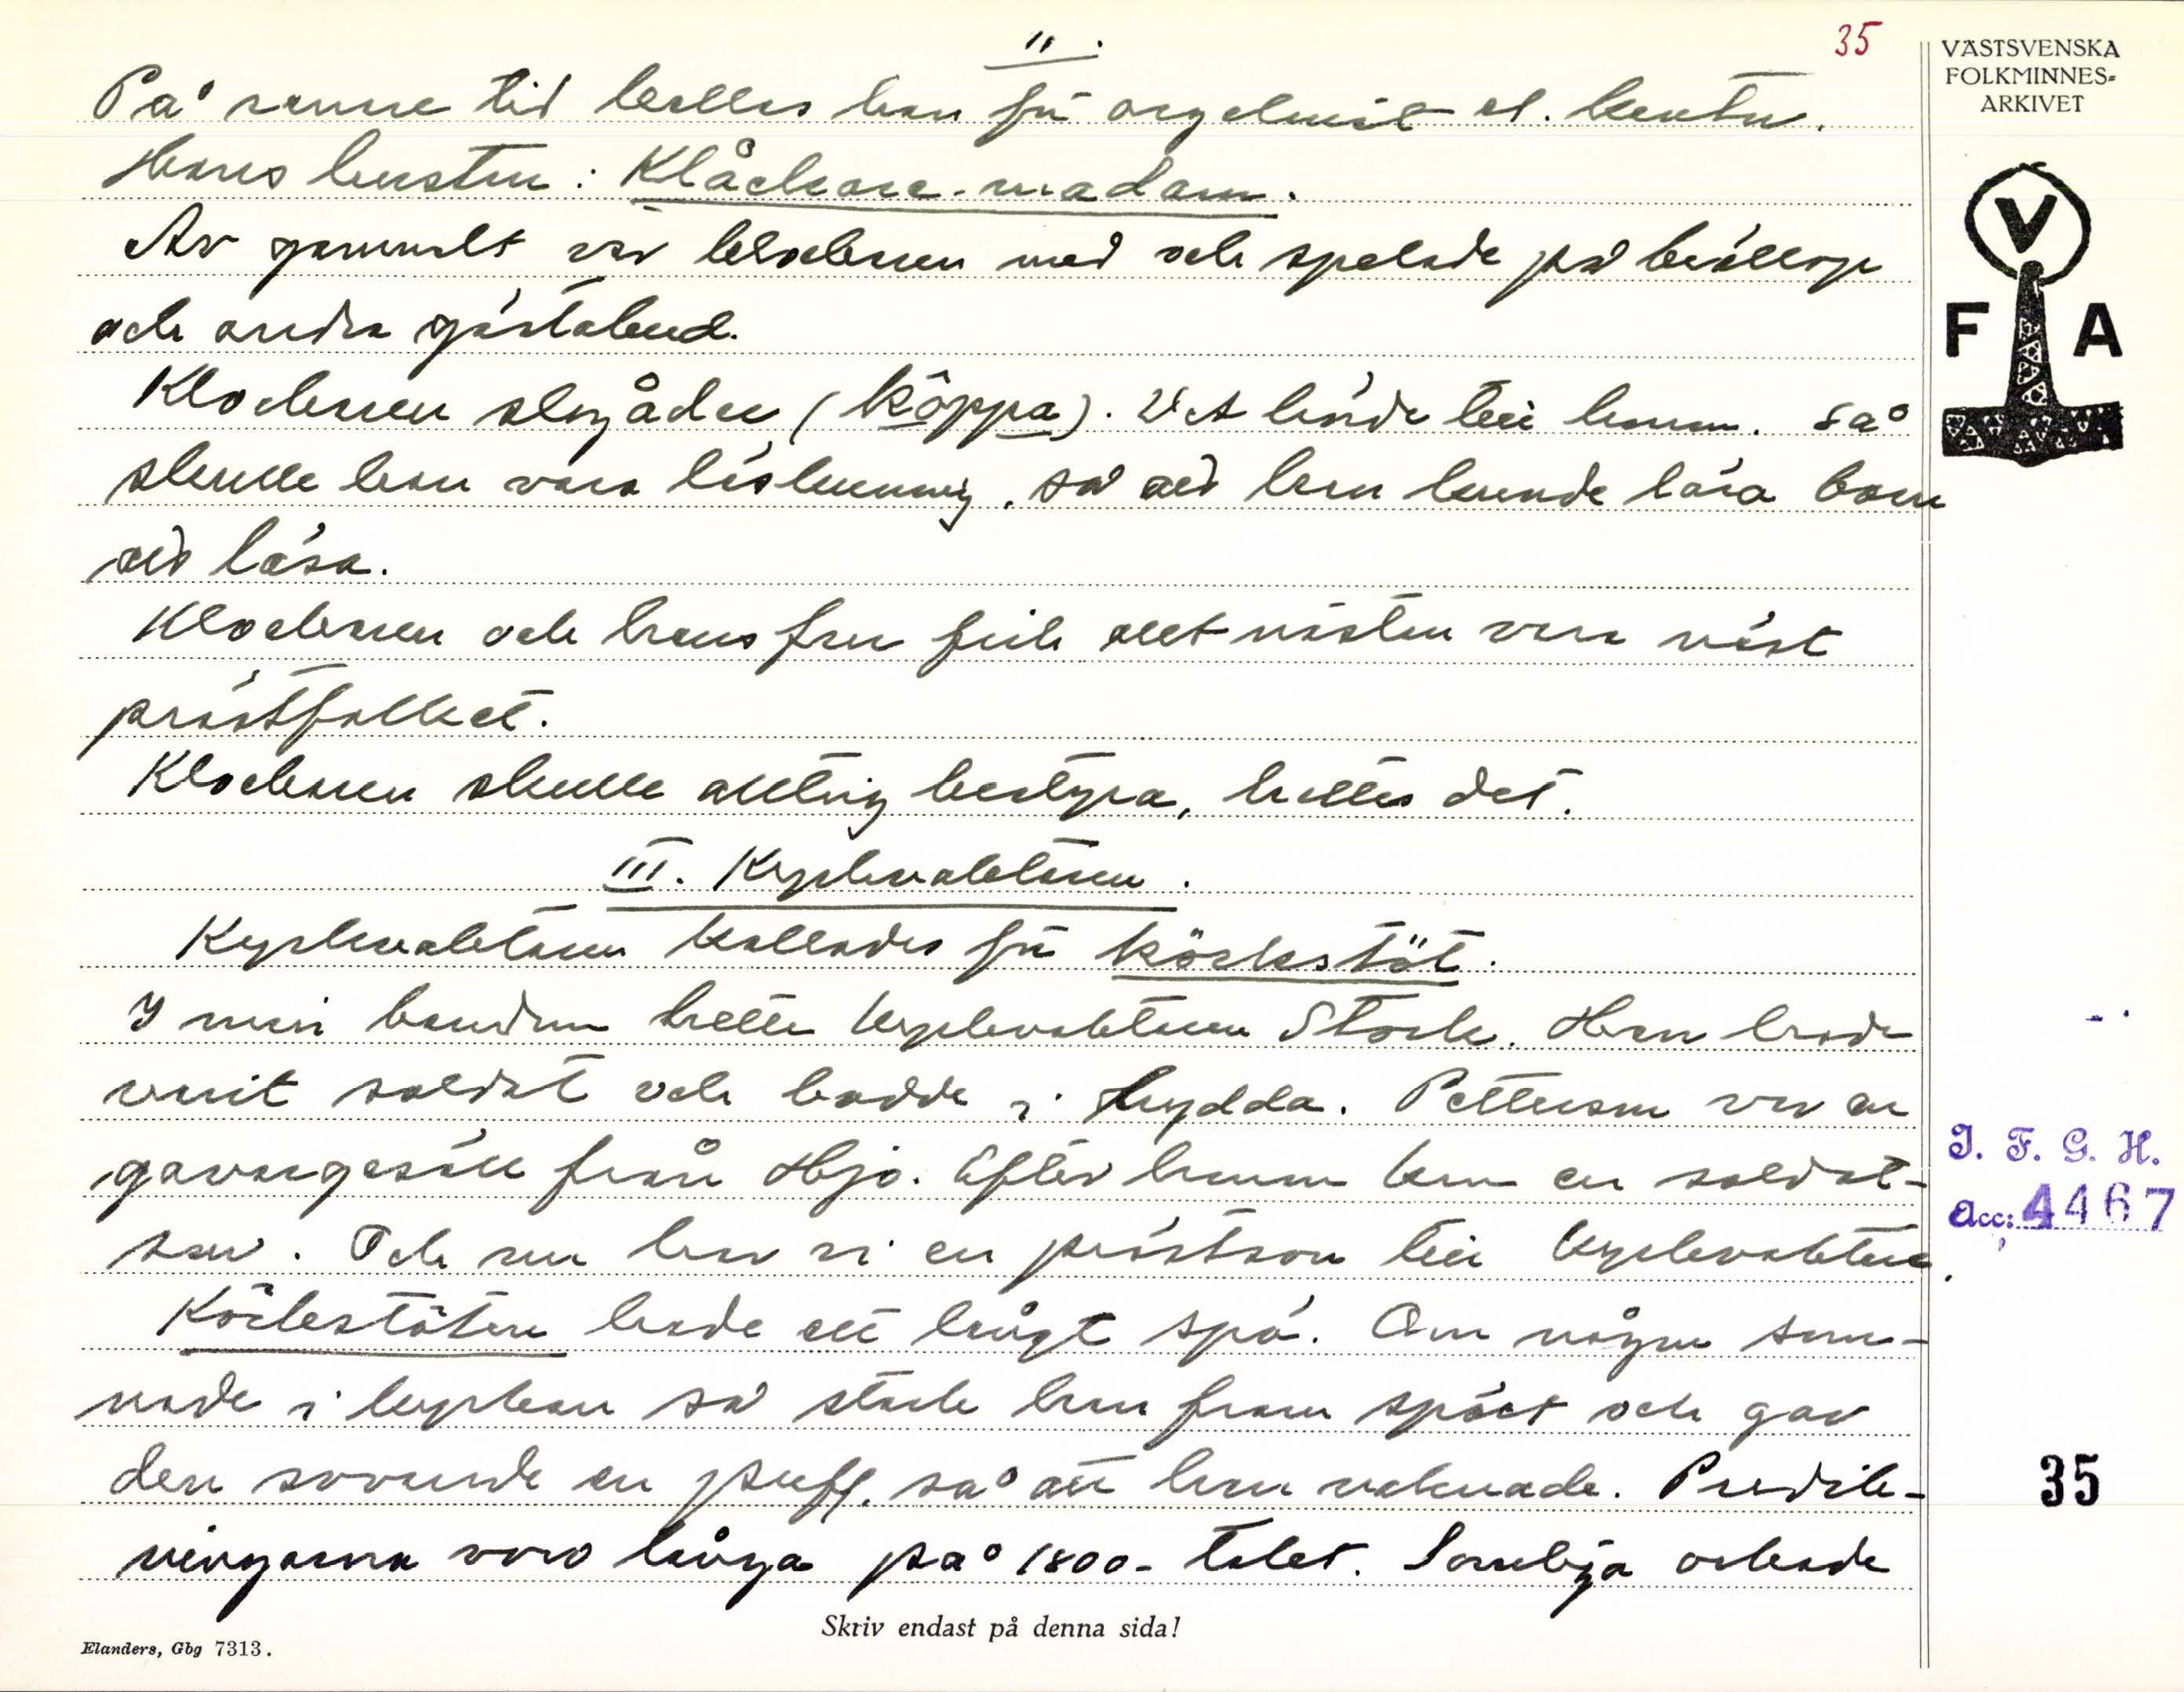 11.
35
På senare tid kallas han för organist el. kantor.
Hans hustru: Klåckare-madam.
Av gammalt var klockaren med och spelade på bröllop
och andra gästabud.
Klockaren skojåder (köppa). Det hörde till honom. Så
skulle han vara läskunnig, så att han kunde lära barn
att läsa.
Klockaren och hans fru fick allt nästan vara näst
prästfolket.
Klockaren skulle allting bestyra, hettes det.
III. Kyrkvaktaren.
Kyrkvaktaren kallades för körkstöt.
I min barndom hette kyrkvaktaren Stork. Han hade
varit soldat och bodde i Hydda. Petterson var en
garvargesäll från Hjo. Efter honom kom en soldat-
son. Och nu har vi en prästson till kyrkvaktare.
Körkestöten hade ett långt spö. Om någon som-
nade i kyrkan så stack han fram spöet och gav
den sovande en puff, så att han vaknade. Predik-
ningarna voro långa på 1800-talet. Somliga orkade
VÄSTSVENSKA
FOLKMINNES-
ARKIVET
V
F A
I. F. G. H.
Acc: 4467
35
Skriv endast på denna sida!
Elanders, Gbg 7313.